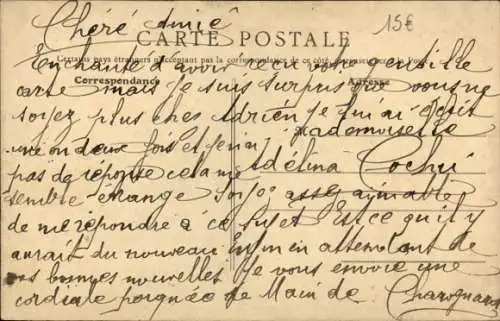 Chéré Amie
15€
CARTE POSTALE
Certains pays étrangers n'acceptant pas la correspondance de ce côté
Enchanté d'avoir recu votre gentille
Correspondance
Adresse
carte mais Je suis surpris que vous ne
soyez plus chez Adrien Je lui ai écrit
Mademoiselle
une on deux fois et Je n'ai
Adélina Cochú
pas de réponse cela me
semble étrange Soyez assez aimable
de me répondre à ce sujet Est ce qu'il y
aurait du nouveau enfin en attendant de
vos bonnes nouvelles Je vous envoie une
cordiale poignée de Main de